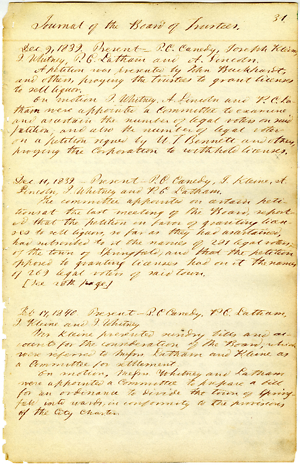 31
Journal of the Board of Trustees
Dec 9, 1839. Present – P. C. Canedy, Joseph Klein,
J. Whitney, P. C. Latham and A. Lincoln.
A petition was presented by John Buckhardt,
and others, praying the trustees to grant licenses
to sell liquor.
On motion J. Whitney, A. Lincoln and P. C. La-
tham were appointed a Committee to examine
and ascertain the number of legal voters on said
petition, and also the number of legal voters
on a petition signed by W. T. Bennett and others,
praying the Corporation to withhold licenses.
Dec 11, 1839 – Present – P. C. Canedy, J. Kleine, A.
Lincoln, J. Whitney and P. C. Latham.
The committee appointed on certain peti-
tions at the last meeting of the Board, report-
ed that the petition in favor of granting licen-
ses to sell liquors, so far as they had ascertained,
had subscribed to it the names of 231 legal voters
of the town of Springfield, and that the petition
opposed to granting licenses had on it the names
of 269 legal voters of said town.
[See page]
Dec 17, 1840. Present – P. C. Canedy, P. C. Latham,
J. Kleine and J. Whitney
Mr Kleine presented sundry bills and ac-
counts for the consideration of the Board, which
were referred to Messrs Latham and Kleine as
a Committee for settlement.
On motion, Messrs Whitney and Latham
were appointed a Committee to prepare a bill
for an ordinance to divide the town of Spring-
field into wards, in conformity to the provisions
of the City Charter.